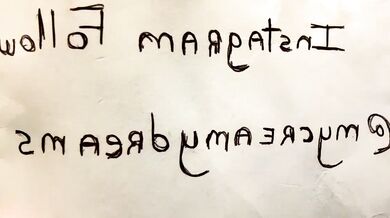 InsTAgRAm Follow
@mycREAmydREAms